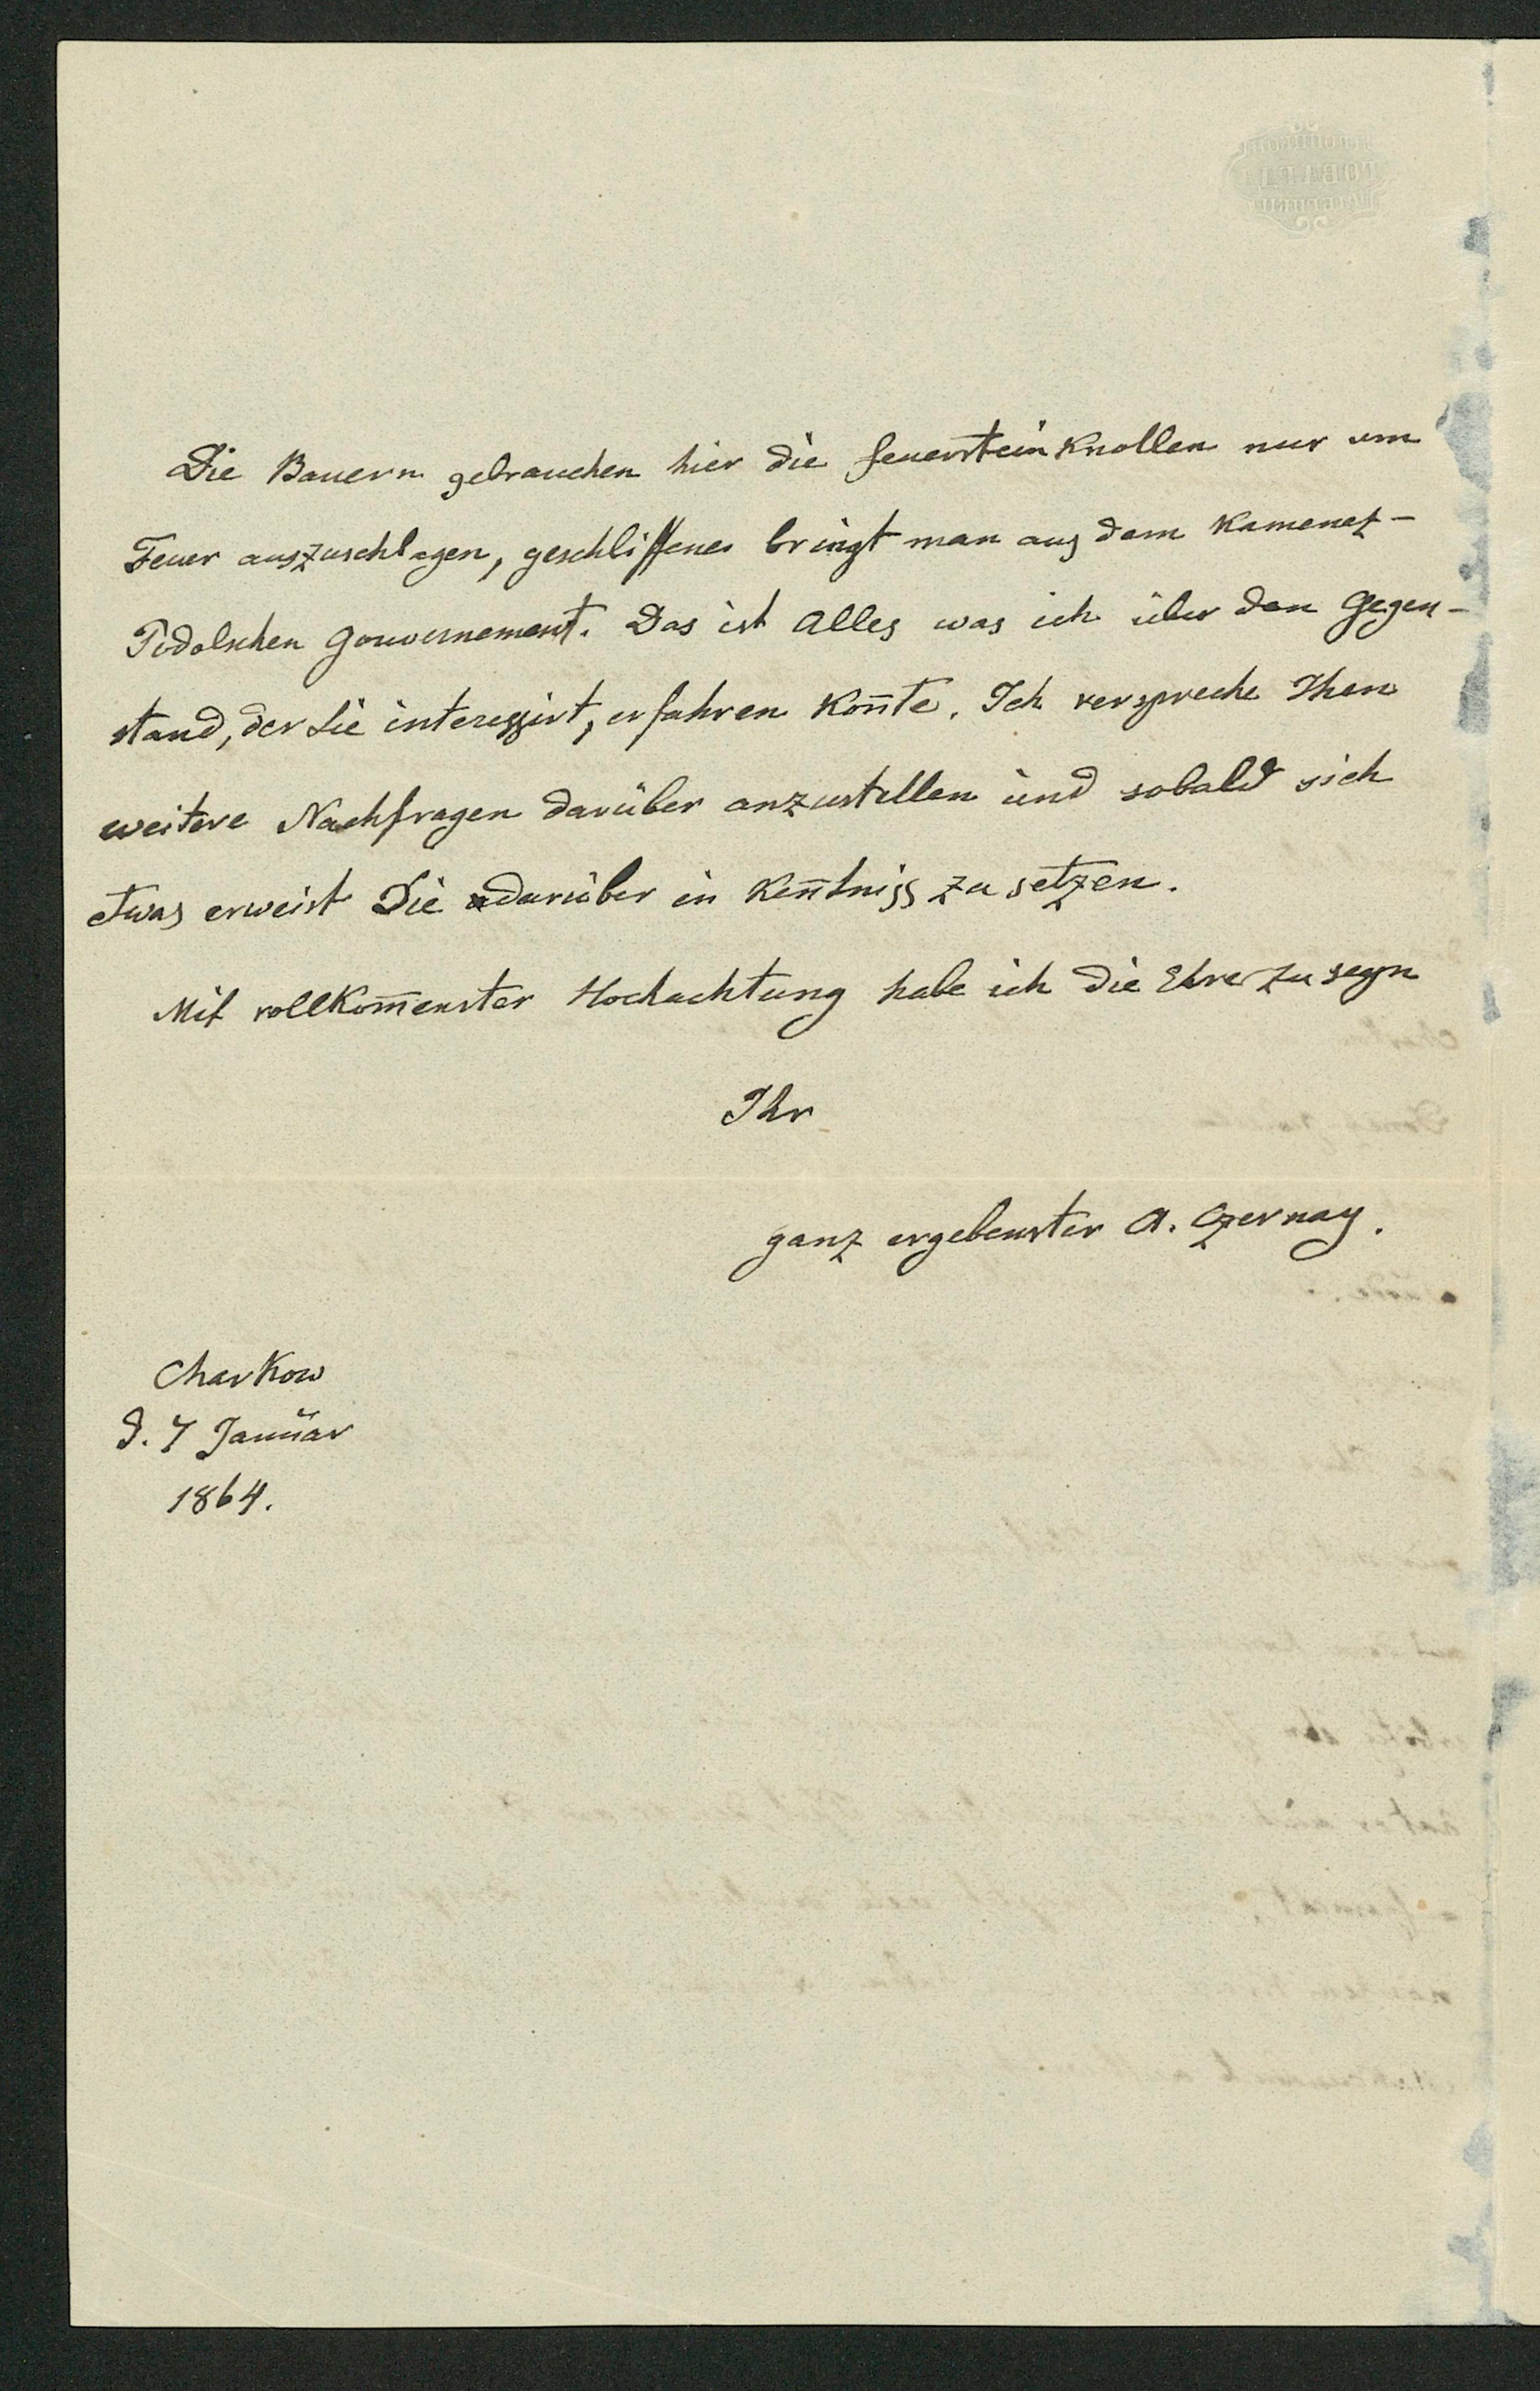 Die Bauern gebrauchen hier die Feuersteinknollen nur um
Feuer auszuschlagen, geschliffenes bringt man aus dem Kamenetz-
Podolschen Gouvernement. Das ist Alles was ich über den Gegen-
stand, der Sie interessirt, erfahren kon̄te. Ich verspreche Ihen
weitere Nachfragen darüber anzustellen und sobald sich
etwas erweist Sie darüber in Ken̄tniss zu setzen.
Mit vollkom̄enster Hochachtung habe ich die Ehre zu seyn
Ihr
ganz ergebenster A. Czernay.
Charkow
d. 7 Januar
1864.